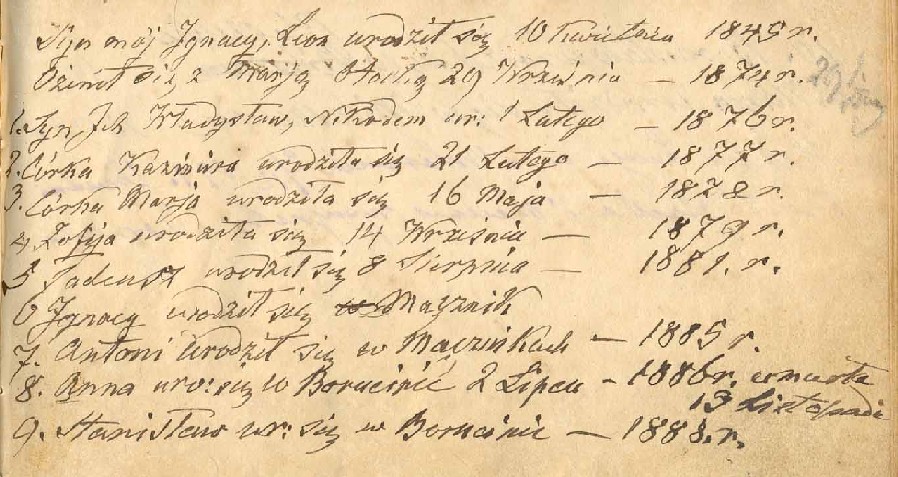 Syn mój Ignacy, Leon urodził się 10 Kwietnia 1845 r.
Ożenił się z Marją 29 Września — 1874 r.
1. Syn, Ich Władysław, Nikodem ur: 1 Lutego — 1876 r.
2. Córka Kazimira urodziła się 21 Lutego — 1877 r.
3. Córka Marja urodziła się 16 Maja — 1878 r.
4. Zofija urodziła się 14 Wrześnie — 1879 r.
5 Tadeusz urodził się 8 Sierpnia — 1881. r.
6 Ignacy urodził się w
7. Antoni urodził się w — 1885 r.
8. Anna uro: się w 2 Lipca - 1886 r. umarła
13 Listopada
9. Stanisław ur: się w — 1888. r.